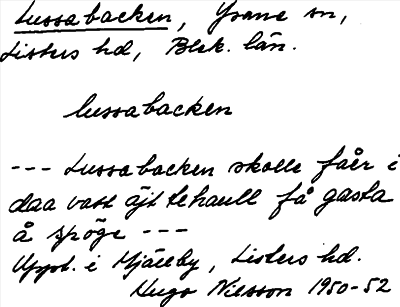 Lussabacken, Ysane sn,
Listers hd, Blek. län.
lussabacken
--- Lussabacken skolle fåer i
daa vast äjt tehaull få gasta
å spöge ---
Uppt. i Mjällby, Listers hd.
Hugo Nilsson 1950-52